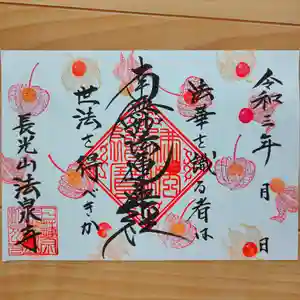 令和二年 月 日
法華を識る者は
南無妙法蓮華経
世法を得べきか
長光山 法泉寺